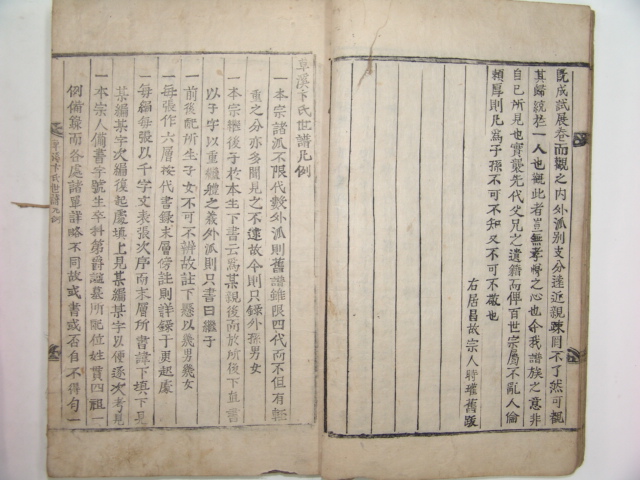 旣成試展卷而觀之內外派別支分遠近親踈罔不了然可槪
其歸統於一人也觀此者豈無孝悌之心也今我譜族之意非
自己所見也實襲先代父兄之遺籍而俾百世宗屬不亂人倫
頼厚則凡爲子孫不可不知又不可不敬也
右居昌故宗人時璀舊跋
草溪卞氏世譜凡例
一本宗諸派不限代數外派則舊譜雖限四代而不但有輕
重之分亦多聞見之不逮故今則只錄外孫男女
一本宗繼後子於本生下書云爲某親後而於所後下直書
以子字以重繼體之義外派則只書曰繼子
一前後配所生子女不可不辨故註下懸以幾男幾女
一每張作六層按代書錄末層傍註則詳錄于更起處
一每編每張以千字文表張次序而末層所書諱下填下見
某編某字次編復起處填上見某編某字以便逐次考見
一本宗人備書字號生卒科第爵諡墓所配位姓貫四祖一
例備錄而各處諸單詳略不同故或書或否自不得句一
草溪卞氏世譜凡例